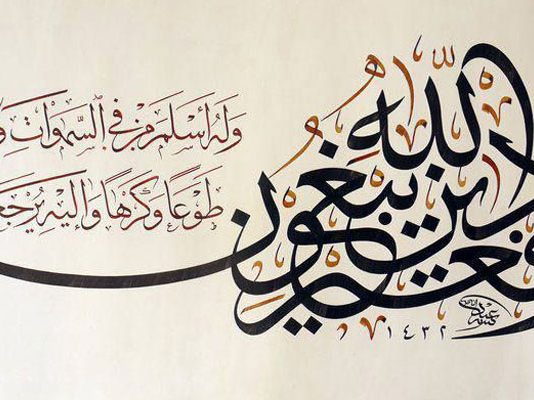 فغير دين الله يبغون
وَلَهُ أَسْلَمَ مَنْ فِي ٱلسَّمٰوَاتِ
طَوْعًا وَكَرْهًا وَإِلَيْهِ
١٤٣٢